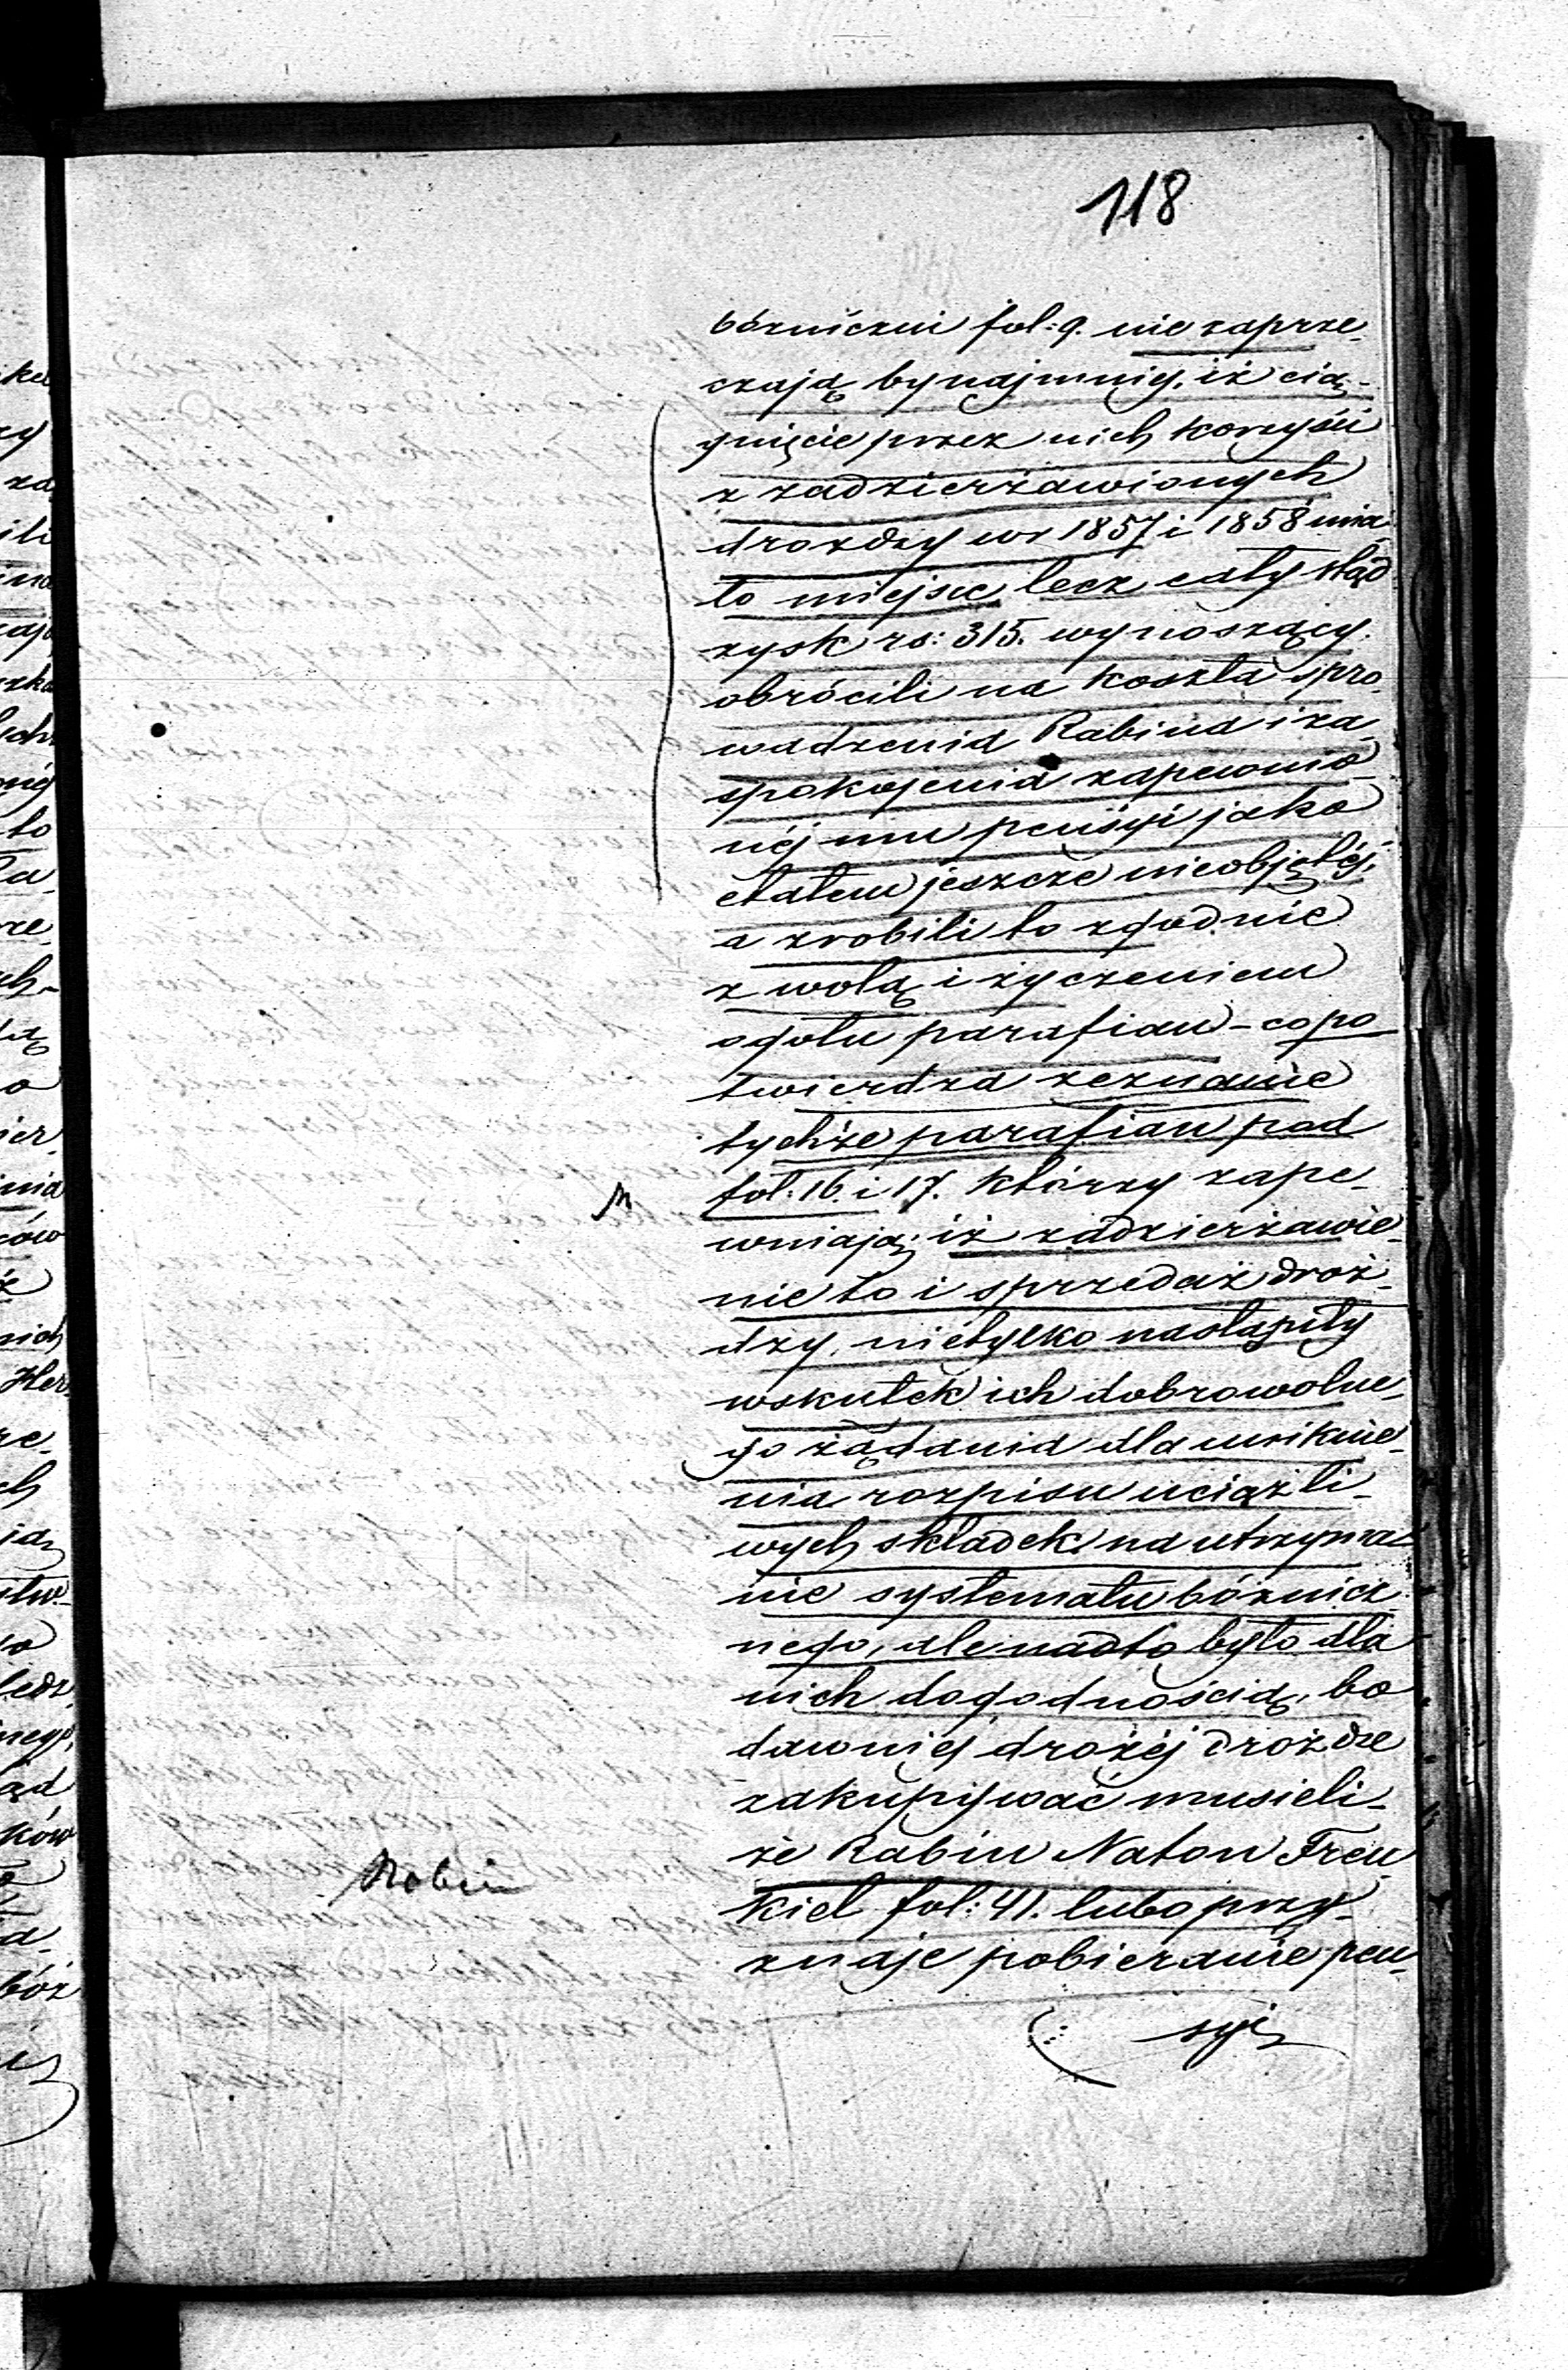 118
bóżniczni fol: 9. nie zaprze-
czają bynajmniéj, iż cią-
gnięcie przez nich korzyści
z zadzierżawionych
drożdży w r 1857 i 1858 mia-
ło miejsce, lecz cały stąd
zysk rs: 315. wynoszący.
obrócili na koszta spro-
wadzenia Rabina i za-
spokojenia zapewnio-
néj mu pensyi jako
etatem jeszcze nieobjętéj,
a zrobili to zgodnie
z wolą i życzeniem
ogółu parafian - co po-
twierdza zeznanie
tychże parafian pod
fol: 16. i 17. którzy zape-
wniają, iż zadzierżawie-
nie to i sprzedaż droż-
dży, nietylko nastąpiły
wskutek ich dobrowolne-
go żądania dla uniknie-
nia rozpisu uciążli-
wych składek na utrzyma-
nie systematu bóżnicz-
nego, ale nadto było dla
nich dogodnością, bo
dawniéj drożéj drożdże
zakupywać musieli -
że Rabin Naton Fren-
Rabin
kiel fol: 41. lubo przy-
znaje pobieranie pen-
syi